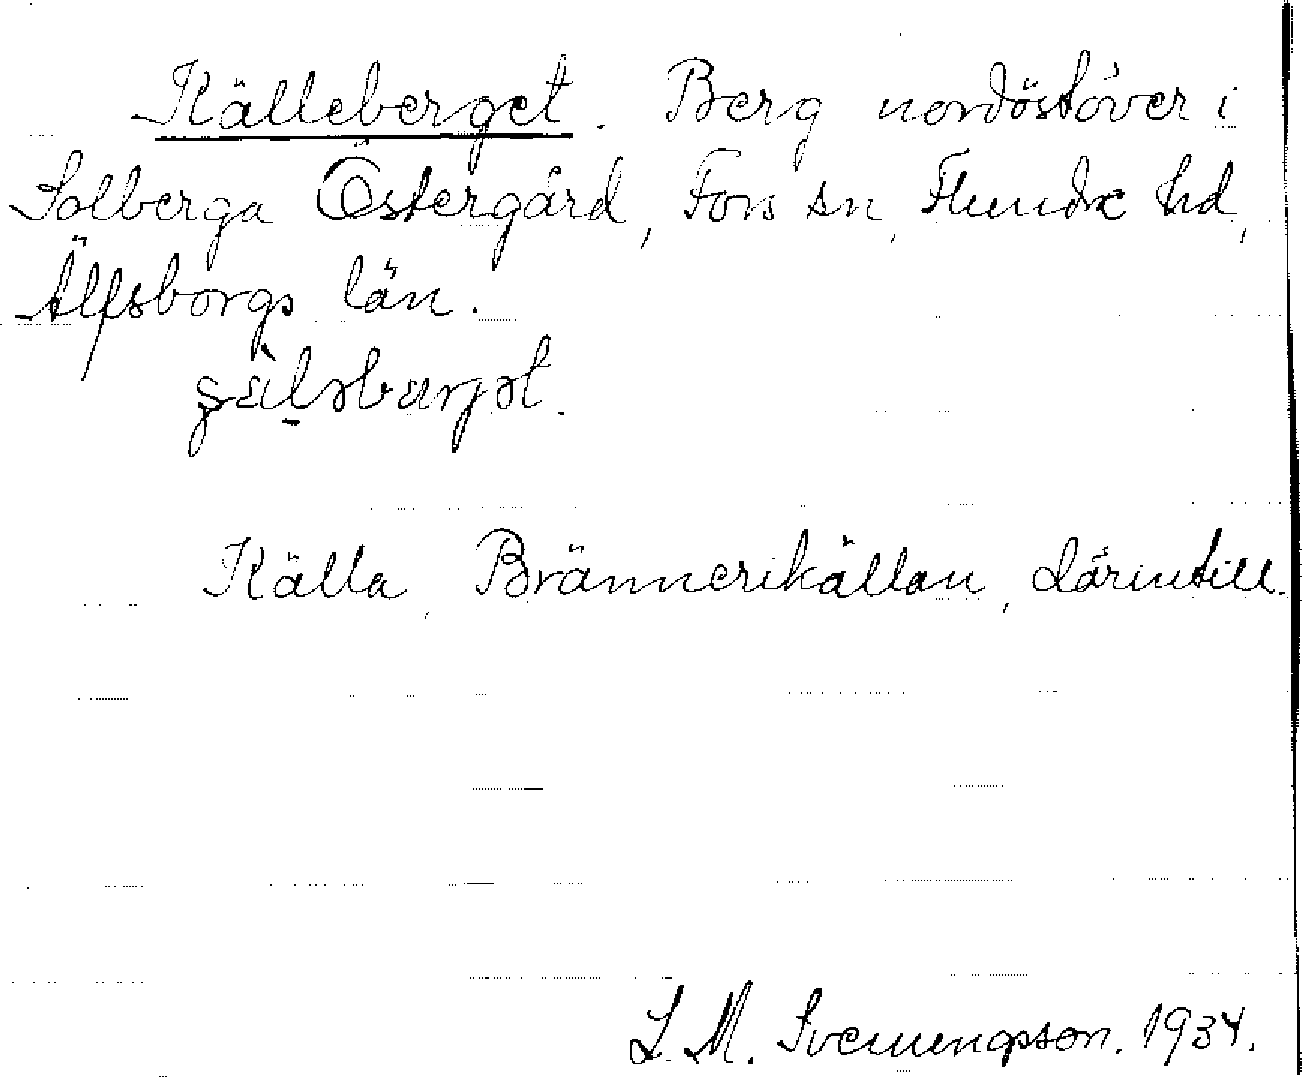 Källeberget. Berg nordöstöver i
Solberga Östergård, Fors sn, Flundre hd,
Älfsborgs län.
Källa, Brännerikällan, därintill.
L. M. Svenungsson. 1934.